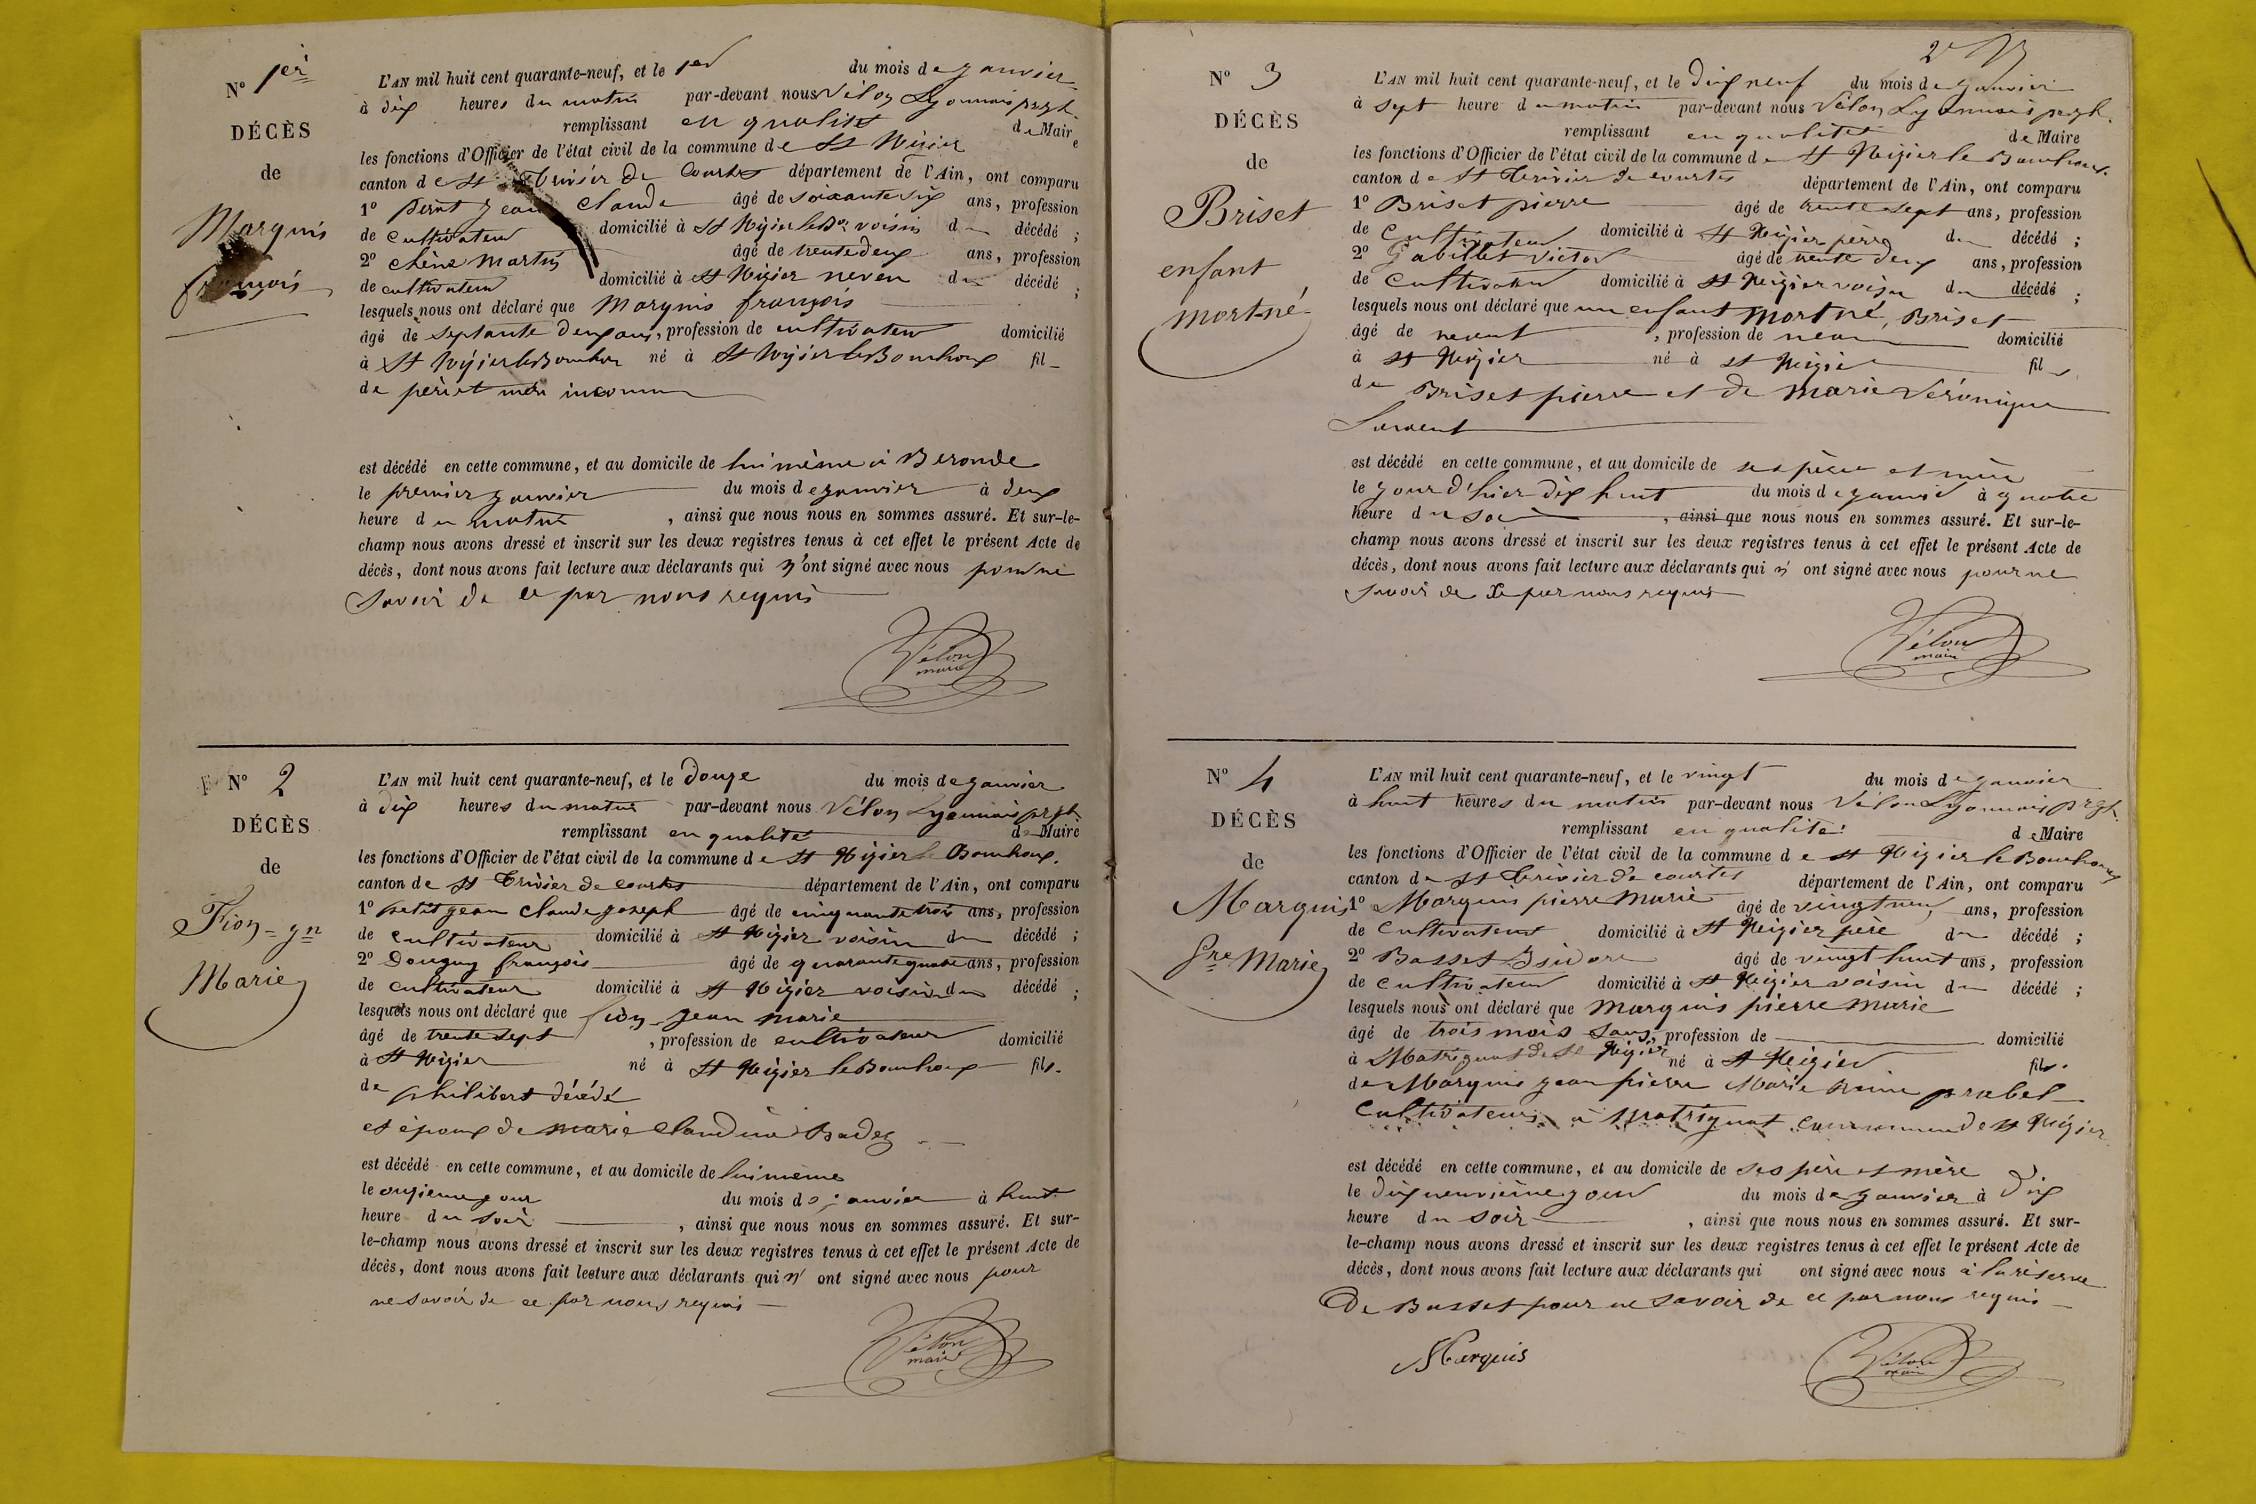 N° 1er
DÉCÈS
de
Marquis
françois
L'AN mil huit cent quarante-neuf, et le 1er du mois de janvier
à dix heures du matin par-devant nous Vélon Lyonnais
remplissant en qualité de Maire
les fonctions d'Officier de l'état civil de la commune de St Nizier
canton de St Trivier de Courtes département de l'Ain, ont comparu
1° jean Claude âgé de soixante six ans, profession
de cultivateur domicilié à St Nizier le Bx voisin du décédé ;
2° chêne Martin âgé de trente deux ans, profession
de cultivateur domicilié à St Nizier neveu du décédé ;
lesquels nous ont déclaré que Marquis françois
âgé de septante deux ans, profession de cultivateur domicilié
à St Nizier le Bouhoux né à St Nizier le Bouhoux fil
de père et mère inconnu
est décédé en cette commune, et au domicile de lui même à Beronde
le premier janvier du mois de janvier à deux
heure du matin , ainsi que nous nous en sommes assuré. Et sur-le-
champ nous avons dressé et inscrit sur les deux registres tenus à cet effet le présent Acte de
décès, dont nous avons fait lecture aux déclarants qui n'ont signé avec nous pour ne
savoir de ce par nous requis
Vélon
maire
N° 2
DÉCÈS
de
Fion jn
Marie
L'AN mil huit cent quarante-neuf, et le douze du mois de janvier
à dix heures du matin par-devant nous Vélon Lyonnais
remplissant en qualité de Maire
les fonctions d'Officier de l'état civil de la commune de St Nizier le Bouhoux.
canton de St Trivier de courtes département de l'Ain, ont comparu
1° petit jean claude joseph âgé de cinquante trois ans, profession
de cultivateur domicilié à St Nizier voisin du décédé ;
2° Douguy françois âgé de quarante quatre ans, profession
de cultivateur domicilié à St Nizier voisin du décédé ;
lesquels nous ont déclaré que fion jean marie
âgé de trente sept , profession de cultivateur domicilié
à St Nizier né à St Nizier le Bouhoux fils.
de philibert décédé
et époux de marie claudine
est décédé en cette commune, et au domicile de lui même
le onzieme jour du mois de janvier à huit
heure du soir , ainsi que nous nous en sommes assuré. Et sur-
le-champ nous avons dressé et inscrit sur les deux registres tenus à cet effet le présent Acte de
décès, dont nous avons fait lecture aux déclarants qui n' ont signé avec nous pour
ne savoir de ce par nous requis
Vélon
maire
2e
N° 3
DÉCÈS
de
Briset
enfant
mort né
L'AN mil huit cent quarante-neuf, et le dix neuf du mois de janvier
à sept heure du matin par-devant nous Vélon Lyonnais
remplissant en qualité de Maire
les fonctions d'Officier de l'état civil de la commune de St Nizier le Bouhoux.
canton de St Trivier de courtes département de l'Ain, ont comparu
1° Briset pierre âgé de trente sept ans, profession
de cultivateur domicilié à St Nizier père du décédé ;
2° Gabillet Victor âgé de trente deux ans, profession
de cultivateur domicilié à St Nizier voisin du décédé ;
lesquels nous ont déclaré que un enfant mort né, Briset
âgé de , profession de domicilié
à St Nizier né à St Nizier fil
de Briset pierre et de marie Véronique
est décédé en cette commune, et au domicile de ses père et mère
le jour d'hier dix huit du mois de janvier à quatre
heure du soir , ainsi que nous nous en sommes assuré. Et sur-le-
champ nous avons dressé et inscrit sur les deux registres tenus à cet effet le présent Acte de
décès, dont nous avons fait lecture aux déclarants qui n' ont signé avec nous pour ne
savoir de ce par nous requis
Vélon
maire
N° 4
DÉCÈS
de
Marquis
Pre Marie
L'AN mil huit cent quarante-neuf, et le vingt du mois de janvier
à huit heures du matin par-devant nous Vélon Lyonnais
remplissant en qualité de Maire
les fonctions d'Officier de l'état civil de la commune de St Nizier le Bouhoux
canton de St Trivier de courtes département de l'Ain, ont comparu
1° Marquis pierre Marie âgé de vingt neuf ans, profession
de cultivateur domicilié à St Nizier père du décédé ;
2° Basset Isidore âgé de vingt huit ans, profession
de cultivateur domicilié à St Nizier voisin du décédé ;
lesquels nous ont déclaré que Marquis pierre marie
âgé de trois mois sans, profession de domicilié
à Matrignat de St Nizier né à St Nizier fils.
de Marquis jean pierre Marie prabel
cultivateurs à Matrignat commune de St Nizier
est décédé en cette commune, et au domicile de ses père et mère
le dix neuvième jour du mois de janvier à dix
heure du soir , ainsi que nous nous en sommes assuré. Et sur-
le-champ nous avons dressé et inscrit sur les deux registres tenus à cet effet le présent Acte de
décès, dont nous avons fait lecture aux déclarants qui ont signé avec nous à la réserve
De Basset pour ne savoir de ce par nous requis
Marquis
Vélon
maire